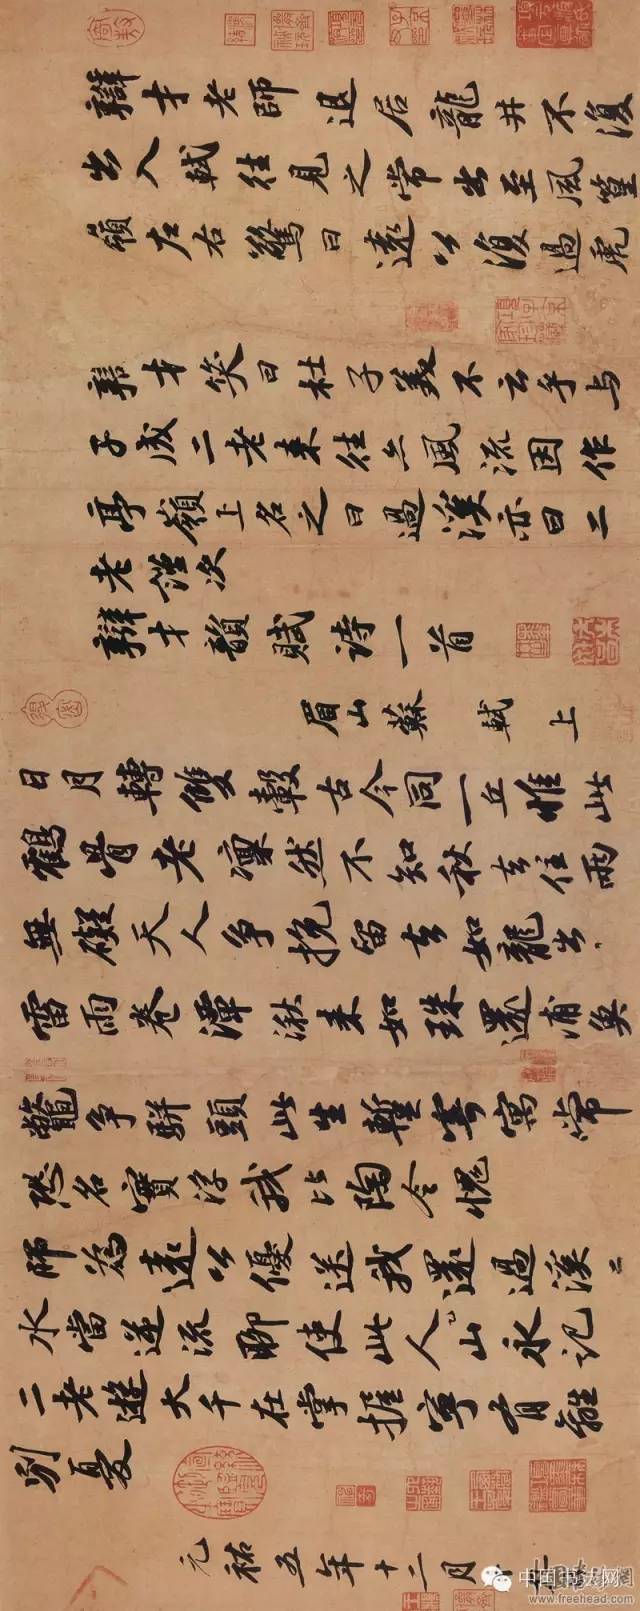 辯才老師退居龍井不復
出入軾往見之常出至風篁
嶺左右驚曰遠公復過虎
辯才笑曰杜子美不云乎与
子成二老来往亦風流因作
亭嶺上名之曰過溪亦曰二
老謹次
辯才韻賦詩一首
眉山蘇軾上
日月轉雙轂古今同一丘惟此
鶴骨老凜然不知秋去住兩
無礙天人爭挽留去如龍出
雷雨卷潭湫来如珠還浦魚
鱉爭駢頭此生暫寄寓常
恐名實浮我比陶令愧
師為遠公優送我還過溪〻
水當逆流聊使此人山永記
二老遊大千在掌握寧有離
別憂
元祐五年十二月
中国书法网
www.freehead.com